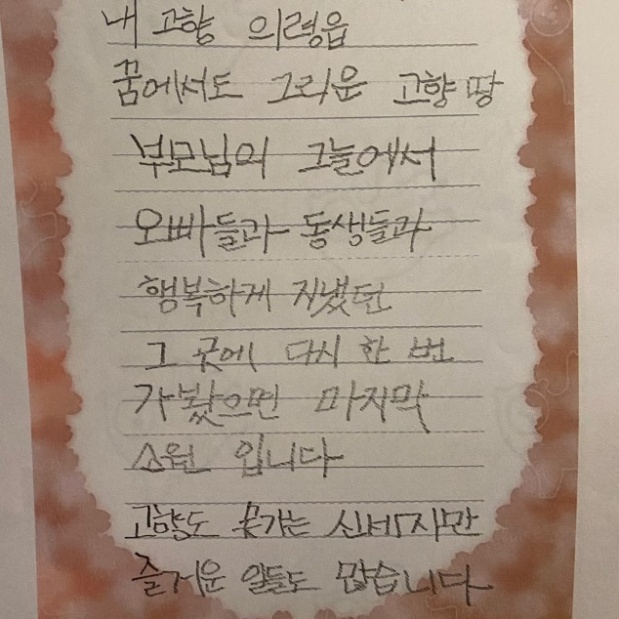 내 고향 의령읍
꿈에서도 그리운 고향땅
부모님의 그늘에서
오빠들과 동생들과
행복하게 지냈던
그 곳에 다시 한 번
가봤으면 마지막
소원 입니다
고향도 못가는 신세지만
즐거운 일들도 많습니다